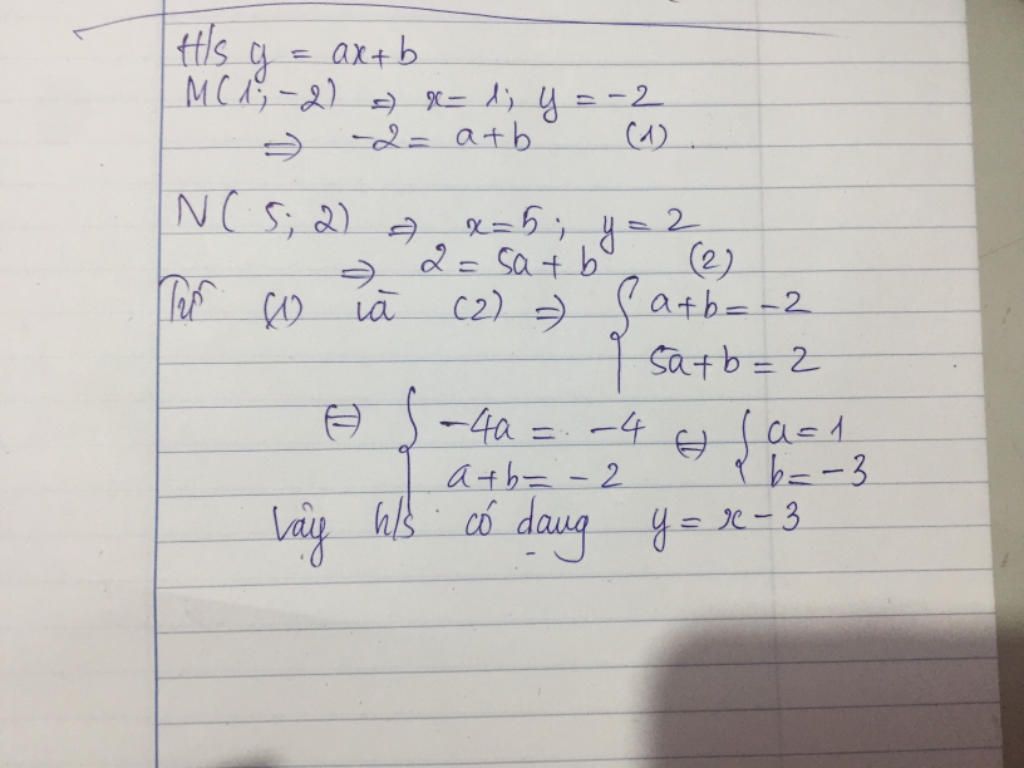 H/s y = ax+b
M(1; -2) ⇒ x= 1; y = -2
⇒ -2= a+b (1)
N( 5; 2) ⇒ x=5; y = 2
⇒ 2 = 5a+b (2)
Từ (1) và (2) ⇒ { a+b=-2
5a+b = 2
⇔ { -4a = -4 ⇔ { a=1
a+b= -2 b= -3
Vậy h/s có dạng y = x-3